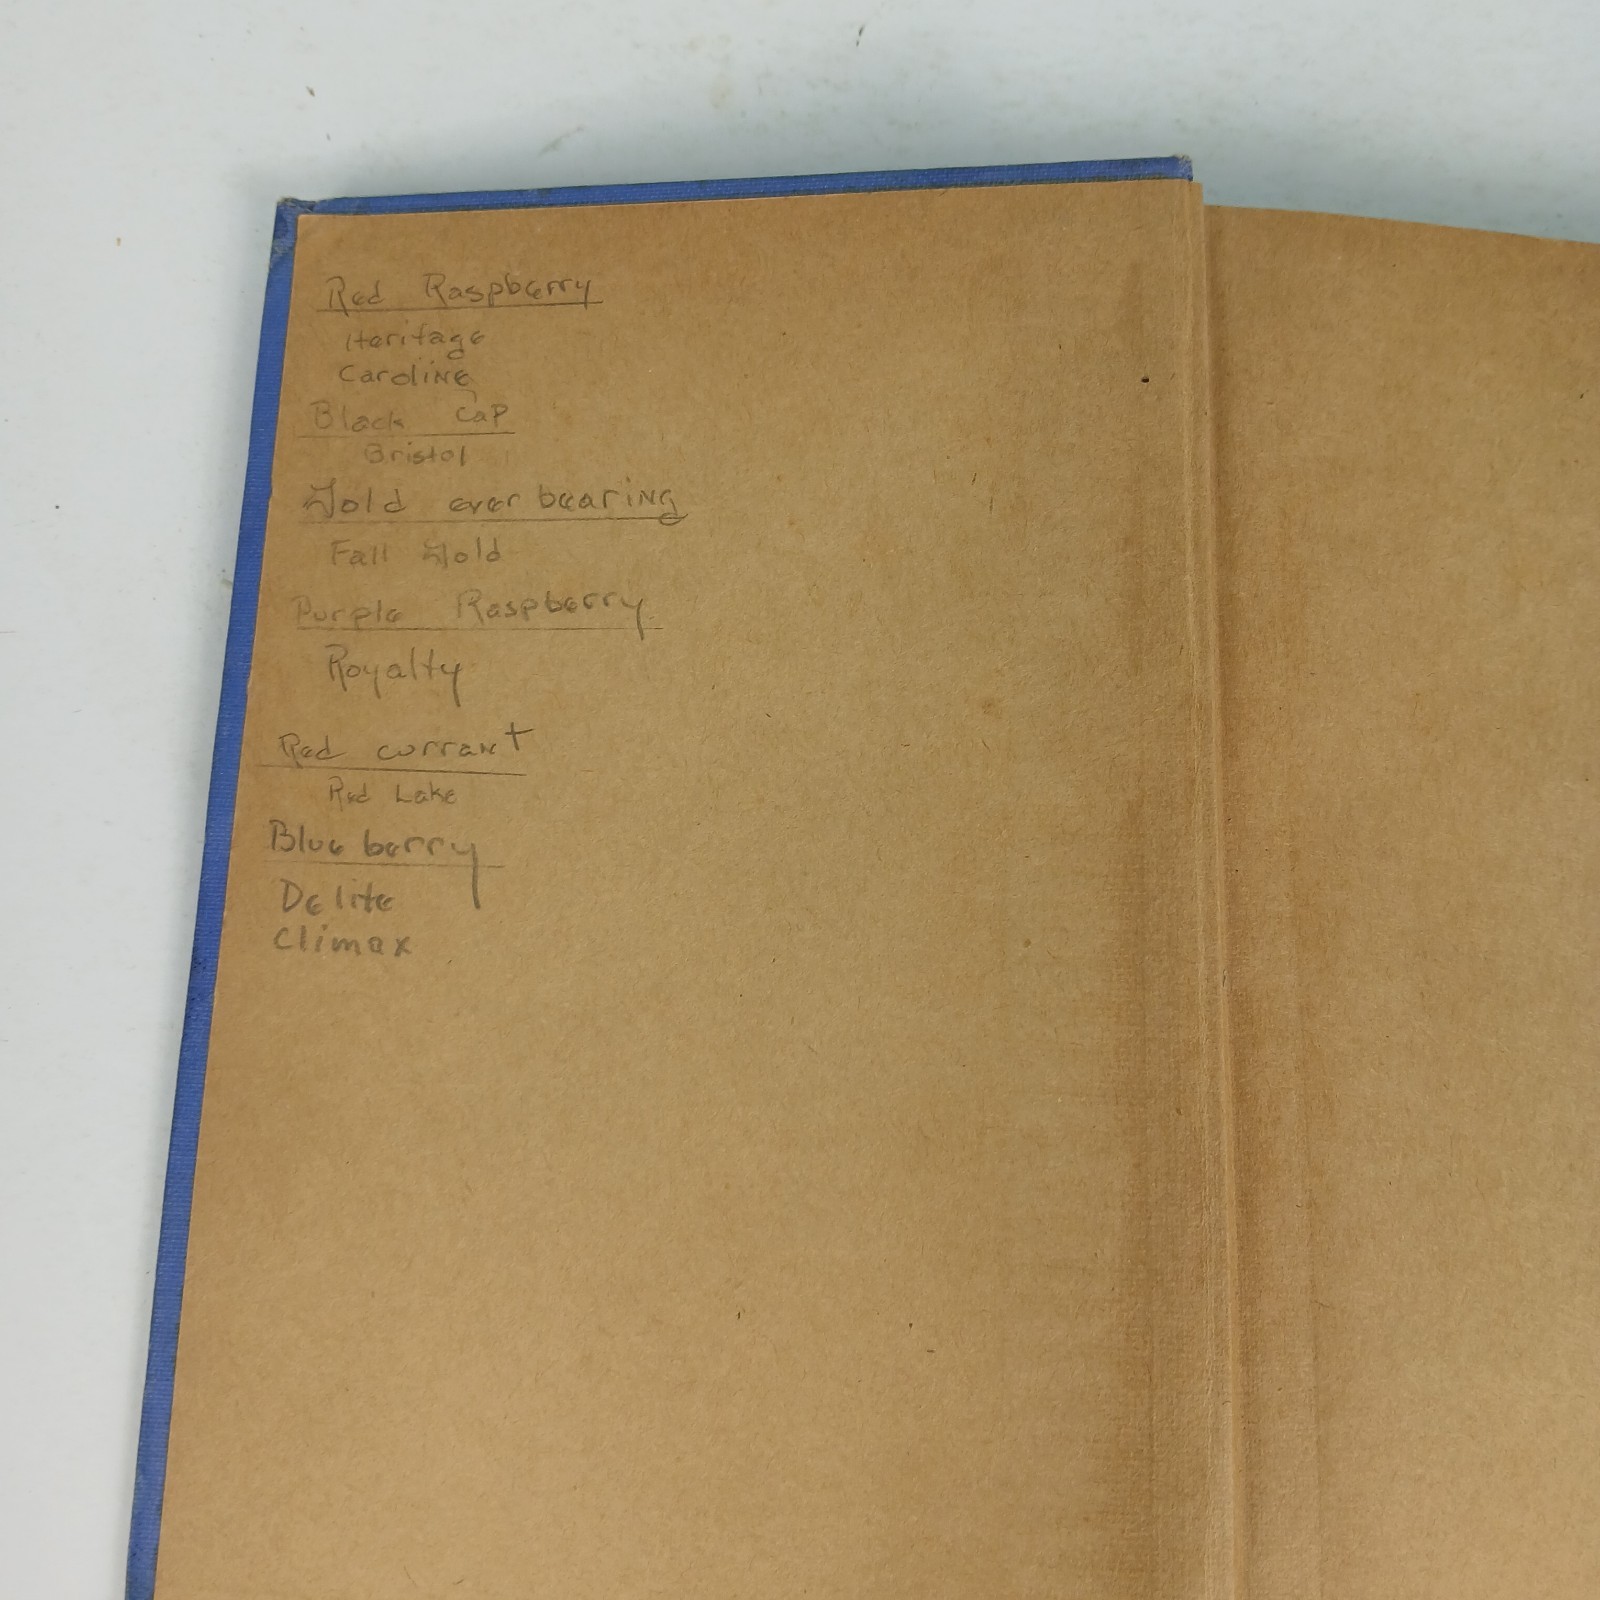 Red Raspberry
Heritage
Caroline
Black Cap
Bristol
Gold ever bearing
Fall Gold
Purple Raspberry
Royalty
Red currant
Red Lake
Blue berry
Delite
Climax